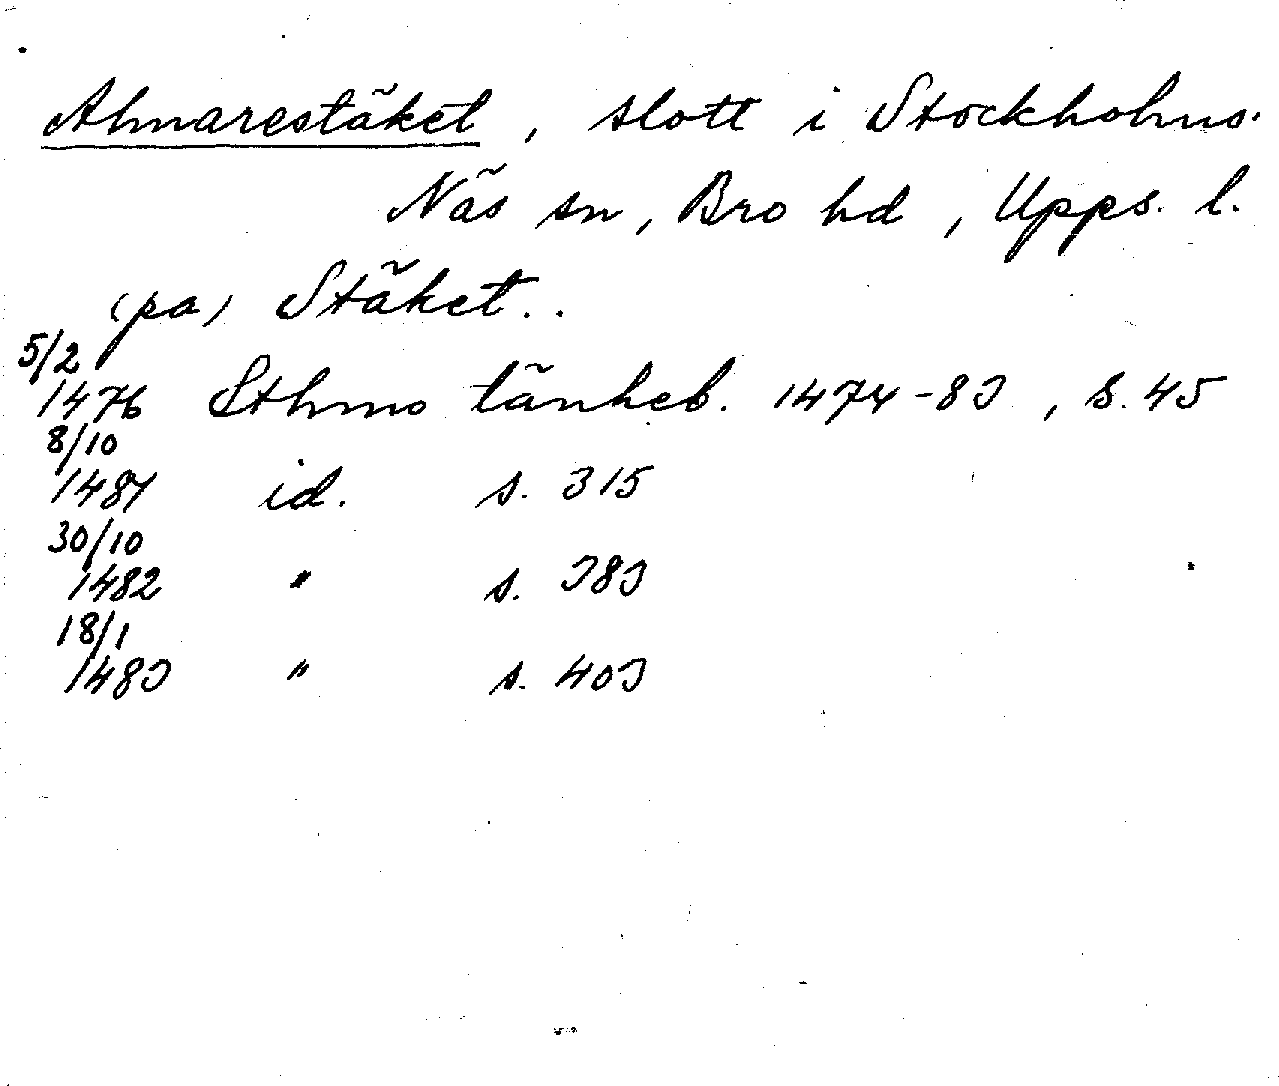 Almarestäket, slott i Stockholms-
Näs sn, Bro hd, Upps. l.
(pa) Stäket..
5/2
1476 Sthmo tänkeb. 1474-83, s. 45
8/10
1481 id. s. 315
30/10
1482 " s. 383
18/1
1483 " s. 403